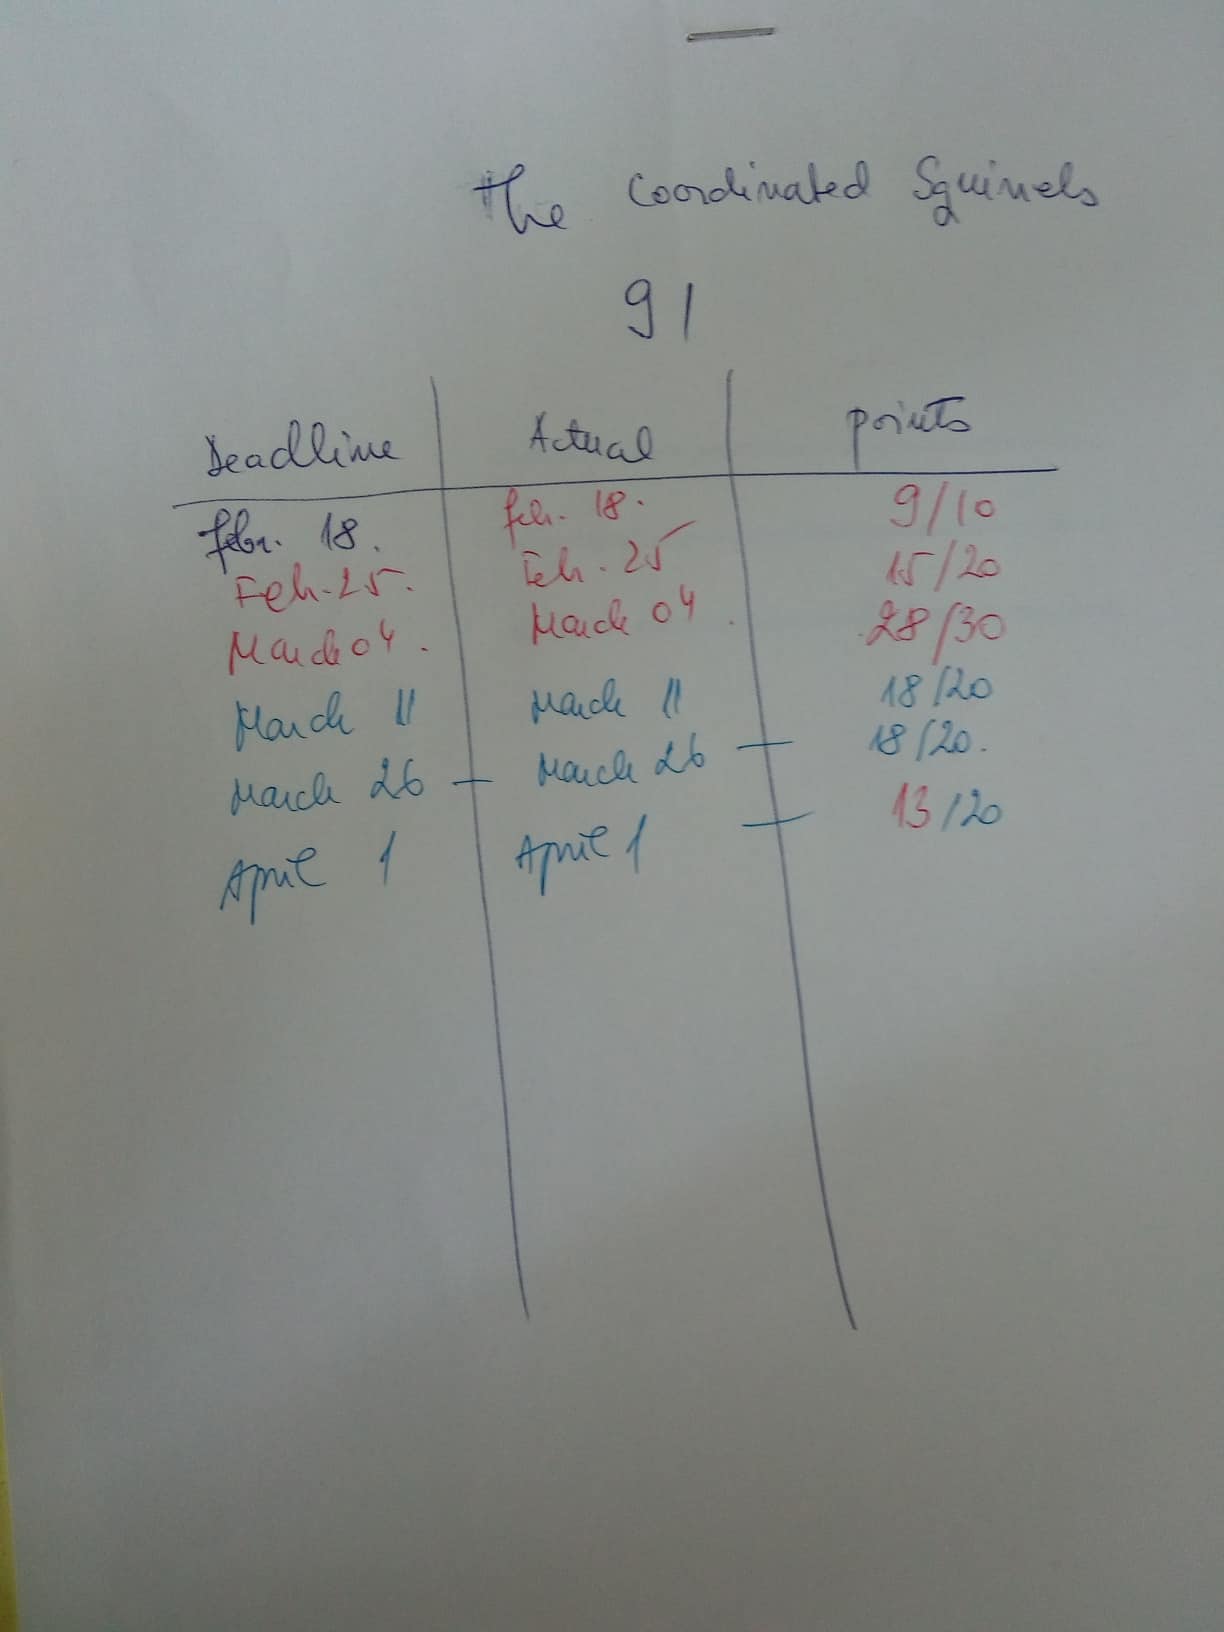 the Coordinated Squirrels
91
Deadline Actual points
febr. 18. feb. 18. 9/10
Feb. 25. Feb. 25 15/20
March 04. March 04. 28/30
March 11 March 11 18/20
March 26 — March 26 — 18/20.
April 1 April 1 — 13/20